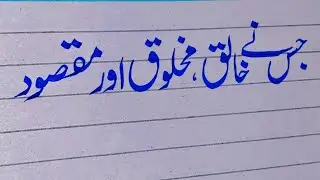 جس نے خالق، مخلوق اور مقصود